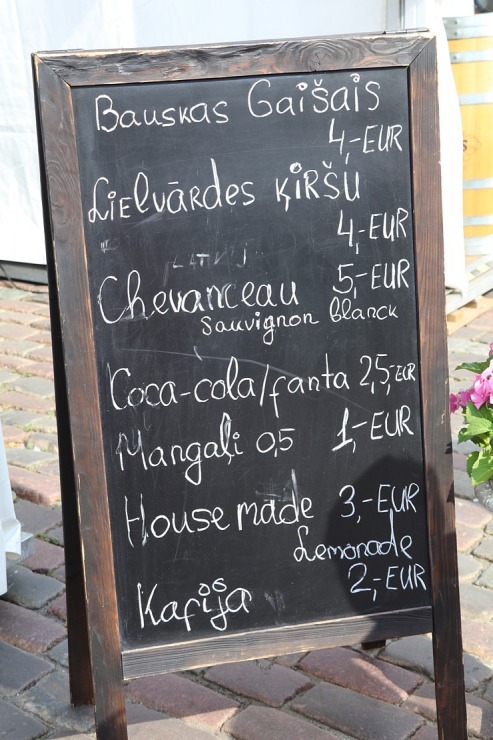 Bauskas Gaišais
4,-EUR
Lielvārdes ķiršu
4,-EUR
Chevanceau 5,-EUR
Sauvignon Blanck
Coca-cola/fanta 2,5,-EUR
Mangaļi 0,5 1,-EUR
House made 3,-EUR
Lemonade
2,-EUR
Kafija